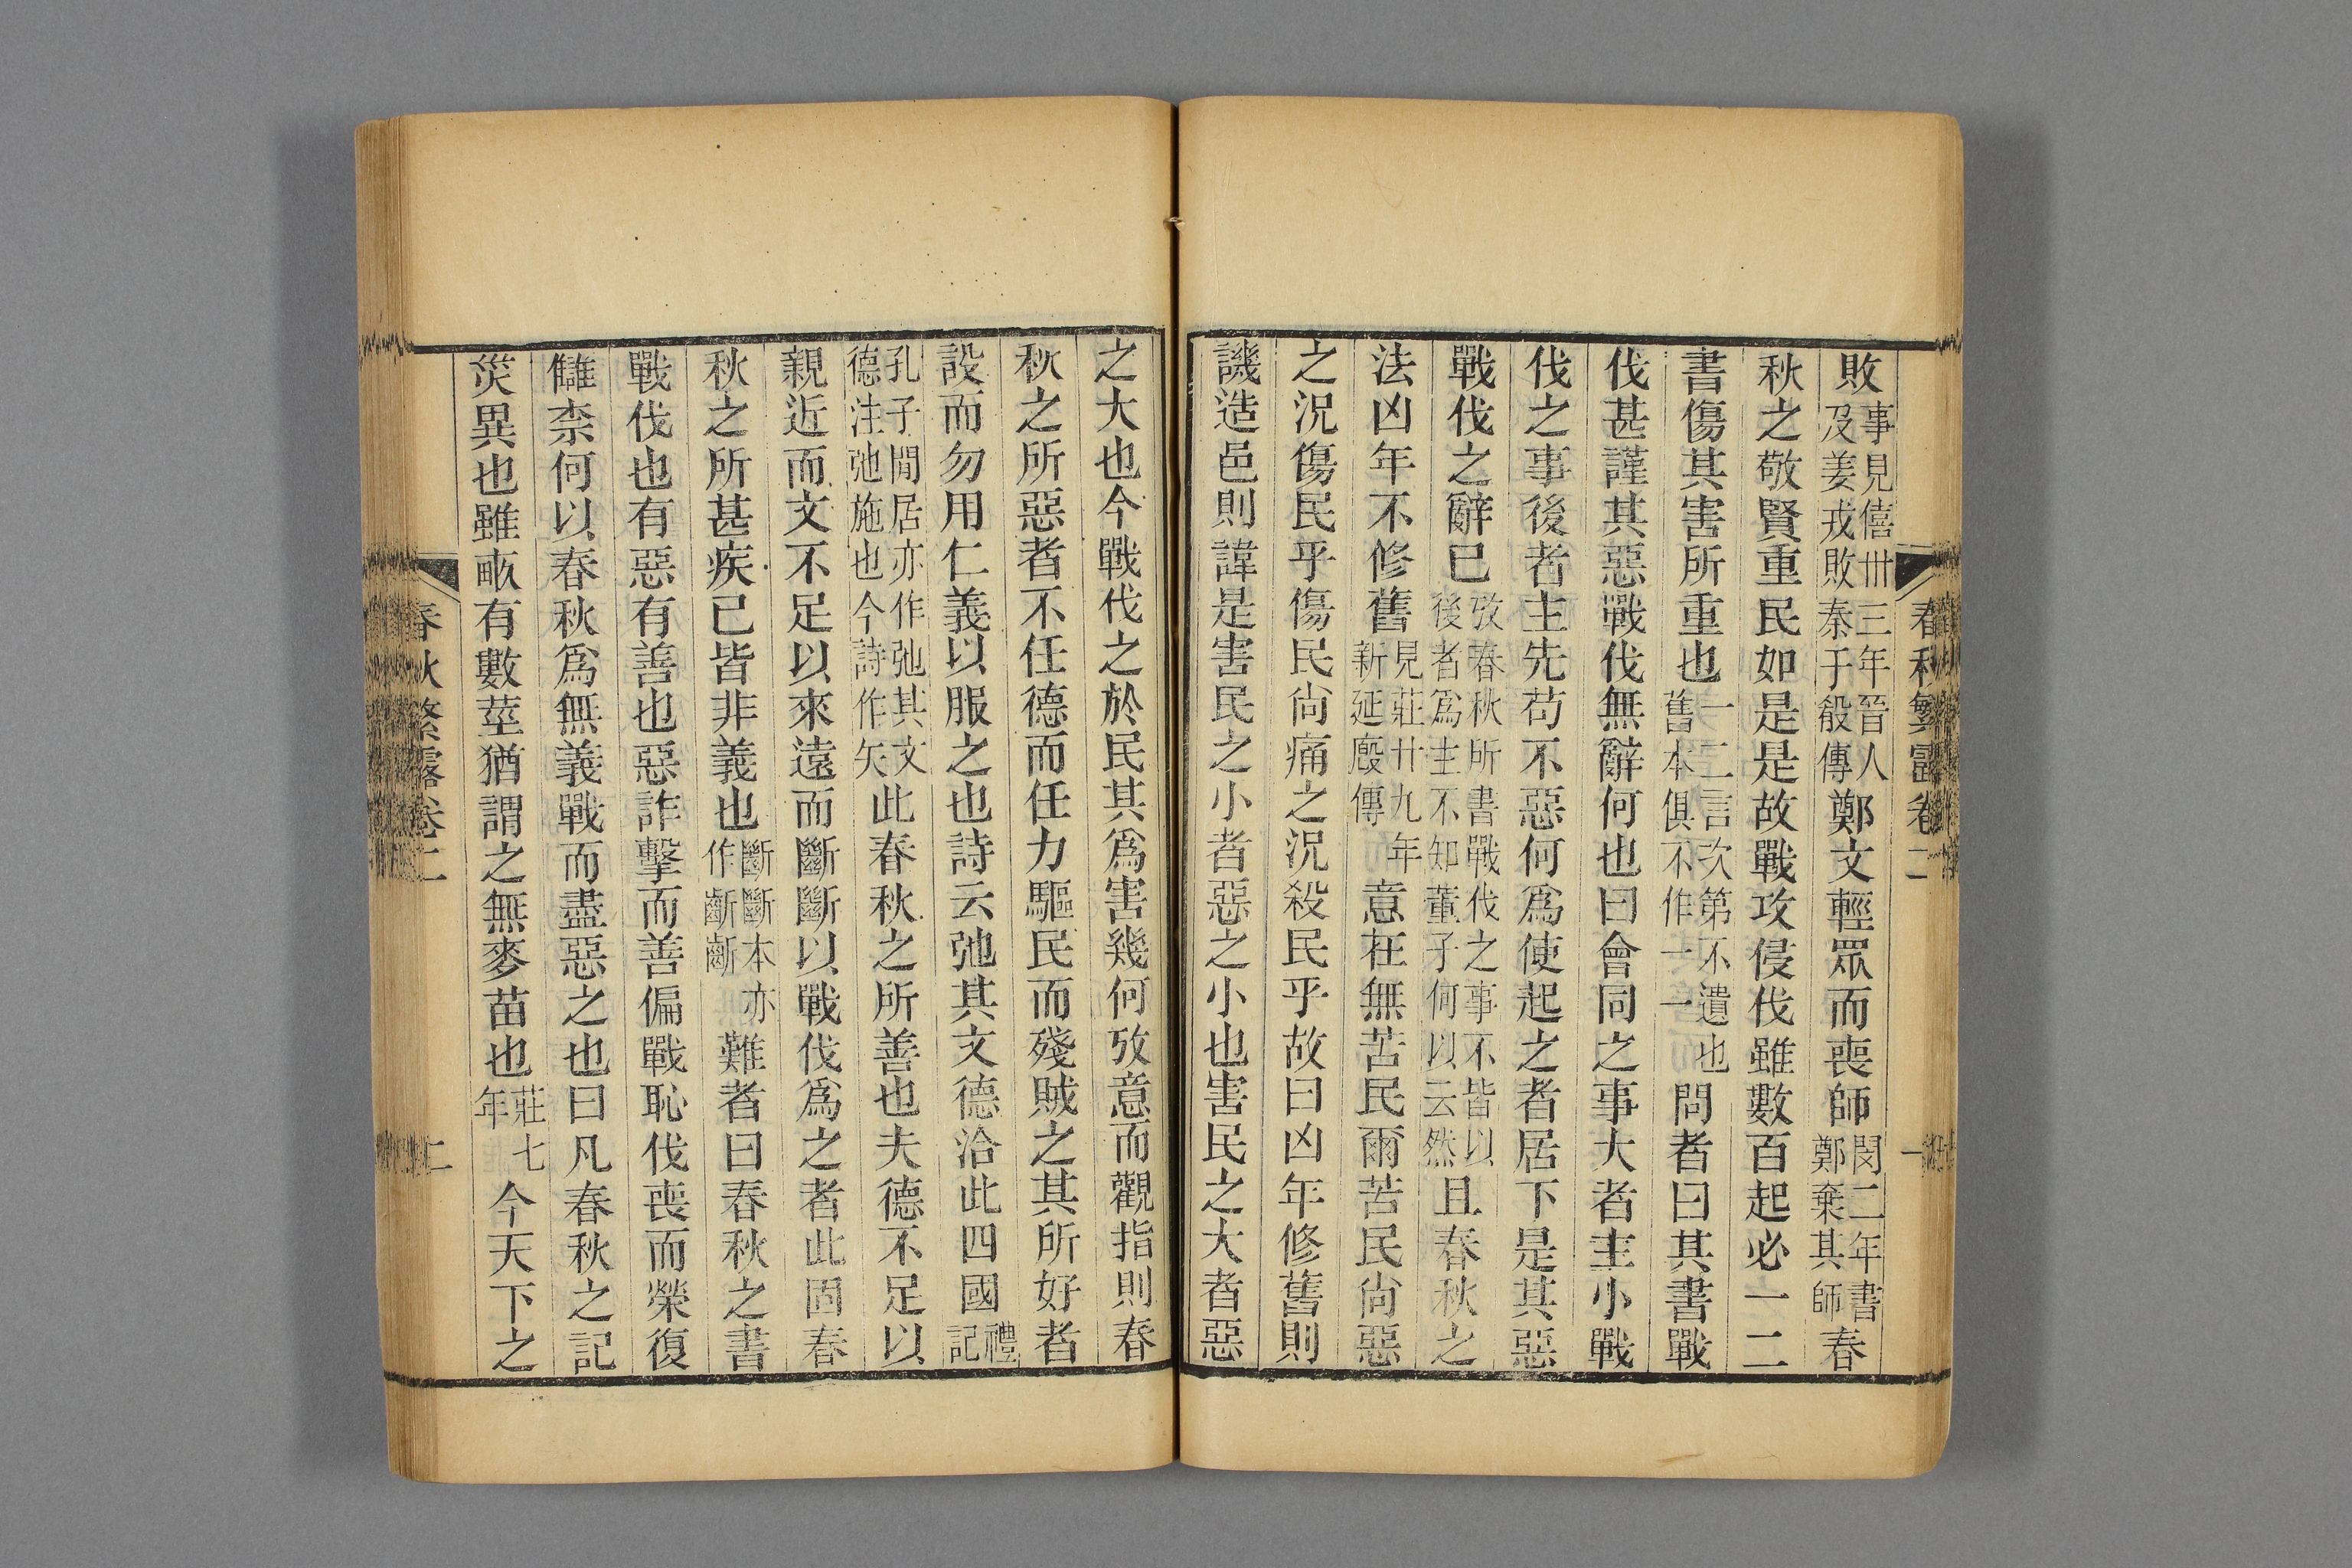 春秋繁露卷二 一
敗事見僖卅三年晉人及姜戎敗秦于殽傳鄭文輕眾而喪師閔二年書鄭棄其師春
秋之敬賢重民如是是故戰攻侵伐雖數百起必一二
書傷其害所重也一二言次第不遺也舊本俱不作一一問者曰其書戰
伐甚謹其惡戰伐無辭何也曰會同之事大者主小戰
伐之事後者主先苟不惡何爲使起之者居下是其惡
戰伐之辭已攷春秋所書戰伐之事不皆以後者爲主不知董子何以云然且春秋之
法凶年不修舊見莊廿九年新延廄傳意在無苦民爾苦民尚惡
之況傷民乎傷民尚痛之況殺民乎故曰凶年修舊則
譏造邑則諱是害民之小者惡之小也害民之大者惡
之大也今戰伐之於民其爲害幾何攷意而觀指則春
秋之所惡者不任德而任力驅民而殘賊之其所好者
設而勿用仁義以服之也詩云弛其文德洽此四國禮記
孔子閒居亦作弛其文德注弛施也今詩作矢此春秋之所善也夫德不足以
親近而文不足以來遠而斷斷以戰伐爲之者此固春
秋之所甚疾已皆非義也斷斷本亦作齗齗難者曰春秋之書
戰伐也有惡有善也惡詐擊而善偏戰恥伐喪而榮復
讎柰何以春秋爲無義戰而盡惡之也曰凡春秋之記
災異也雖畝有數莖猶謂之無麥苗也莊七年今天下之
春秋繁露卷二 二